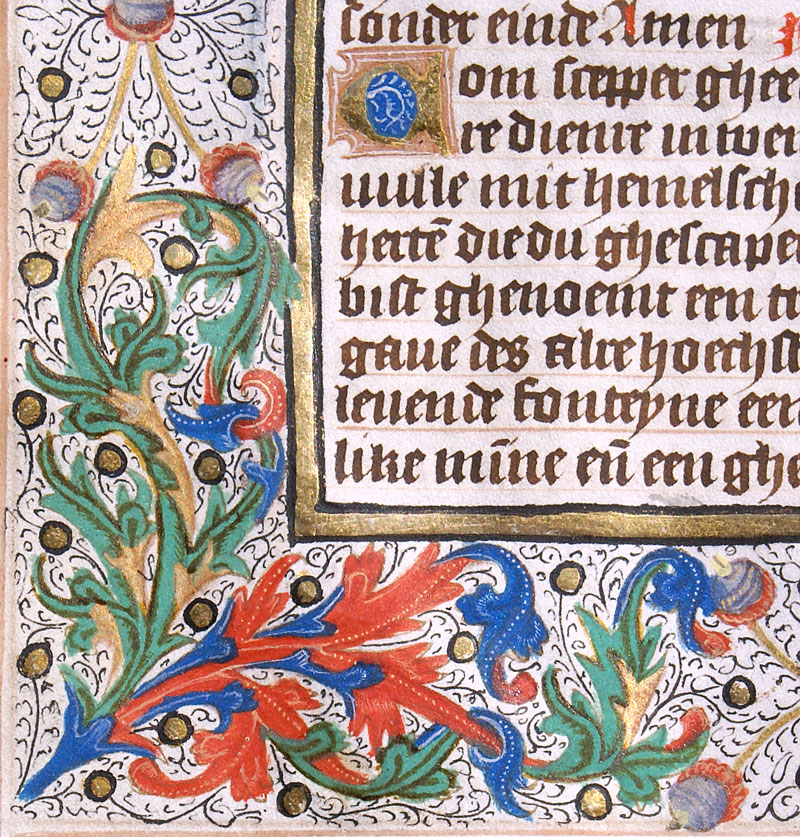 sonder einde Amen
Com scepper ghee
re dienre in wei
uulle mit hemelsche
hertē die du ghescapen
bist ghenoemt een tr
gaue des alre hoechst
leuende fonteyne een
like mīne eñ een ghe